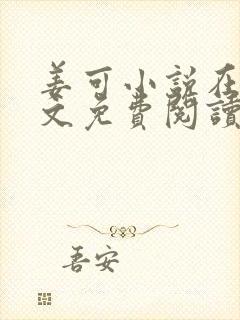 姜可小说在
文免費閱讀
吾安